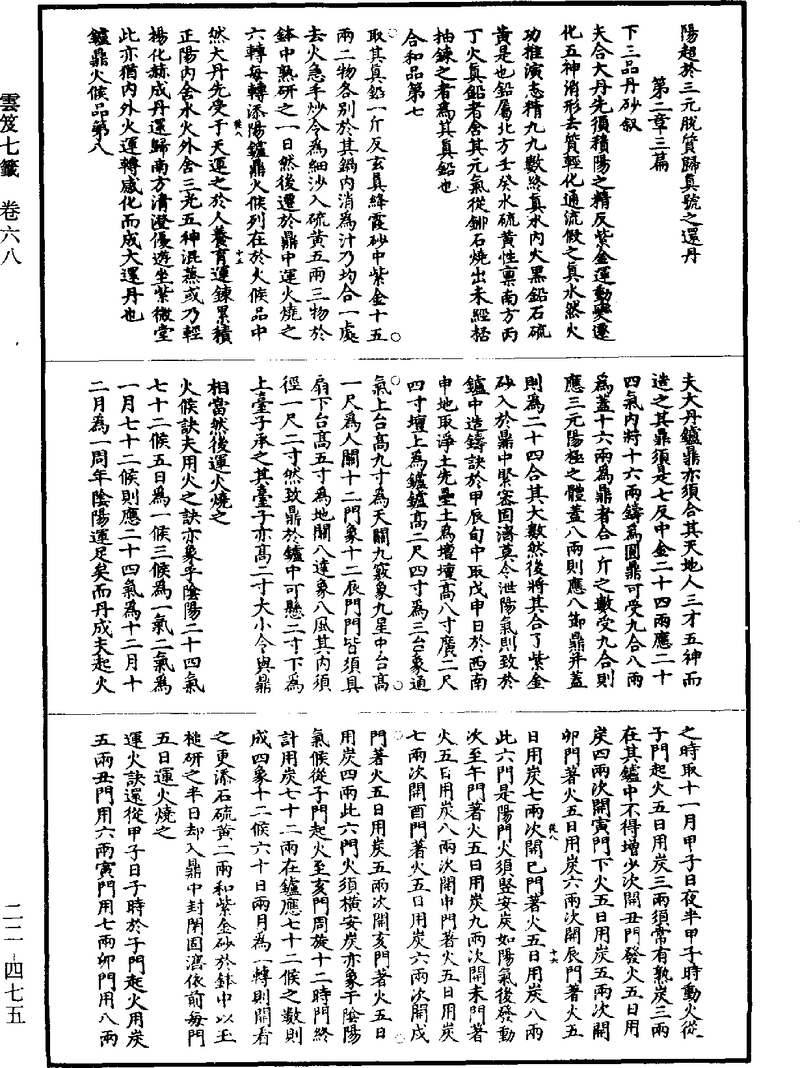 陽超於三元脫質歸真號之還丹
第二章三篇
下三品丹砂叙
夫合大丹先須積陽之精反紫金運動變還
化五神消形去質輕化通流假之真水然火
功推演志精九九數終真水内火黑鉛石硫
黄是也鉛屬北方壬癸水硫黄性禀南方丙
丁火真鉛者含其元氣從鉚石燒出未經栝
抽鍊之者為其真鉛也
合和品第七
取其真鉛一斤反玄真絳霞砂中紫金十五
兩二物各別於其鍋内消為汁乃均合一處
去火急手炒令為細沙入硫黄五兩三物於
鉢中熟研之一日然後還於鼎中運火燒之
六轉每轉添陽鑪鼎火候列在於火候品中
然大丹先受于天運之於人養育運鍊累積
正陽内含水火外含三光五神混蒸或乃輕
楊化赫成丹還歸南方清澄優遊坐紫微堂
此亦猶内外火運轉感化而成大還丹也
鑪鼎火候品第八
夫大丹鑪鼎亦須合其天地人三才五神而
造之其鼎須是七反中金二十四兩應二十
四氣内將十六兩鑄為圓鼎可受九合八兩
為蓋十六兩為鼎者合一斤之數受九合則
應三元陽極之體蓋八兩則應八節鼎并蓋
則為二十四合其大數然後將其合了紫金
砂入於鼎中緊密固濟莫令泄陽氣則致於
鑪中造鑄訣於甲辰旬中取戊申日於西南
申地取淨土先壘土為壇壇高八寸廣二尺
四寸壇上為鑪鑪高二尺四寸為三台象通
氣上台高九寸為天關九竅象九星中台高
一尺為人關十二門象十二辰門門皆須具
扇下台高五寸為地關八達象八風其内須
徑一尺二寸然致鼎於鑪中可懸二寸下為
上臺子承之其臺子亦高二寸大小令與鼎
相當然後運火燒之
火候訣夫用火之訣亦象乎陰陽二十四氣
七十二候五日為一候三候為一氣二氣為
一月七十二候則應二十四氣為十二月十
二月為一周年陰陽運足矣而丹成夫起火
之時取十一月甲子日夜半甲子時動火從
子門起火五日用炭三兩須常有熟炭三兩
在其鑪中不得增少次開丑門發火五日用
炭四兩次開寅門下火五日用炭五兩次開
卯門著火五日用炭六兩次開辰門著火五
日用炭七兩次開巳門著火五日用炭八兩
此六門是陽門火須竪安炭如陽氣後發動
次至午門著火五日用炭九兩次開未門著
火五日用炭八兩次開申門著火五日用炭
七兩次開酉門著火五日用炭六兩次開戌
門著火五日用炭五兩次開亥門著火五日
用炭四兩此六門火須横安炭亦象乎陰陽
氣候從子門起火至亥門周旋十二時門終
計用炭七十二兩在鑪應七十二候之數則
成四象十二候六十日兩月為一轉則開看
之更添石硫黄二兩和紫金砂於鉢中以玉
槌研之半日却入鼎中封閉固濟依前每門
五日運火燒之
運火訣還從甲子日子時於子門起火用炭
五兩丑門用六兩寅門用七兩卯門用八兩
雲笈七籤 卷六八
二二-四七五